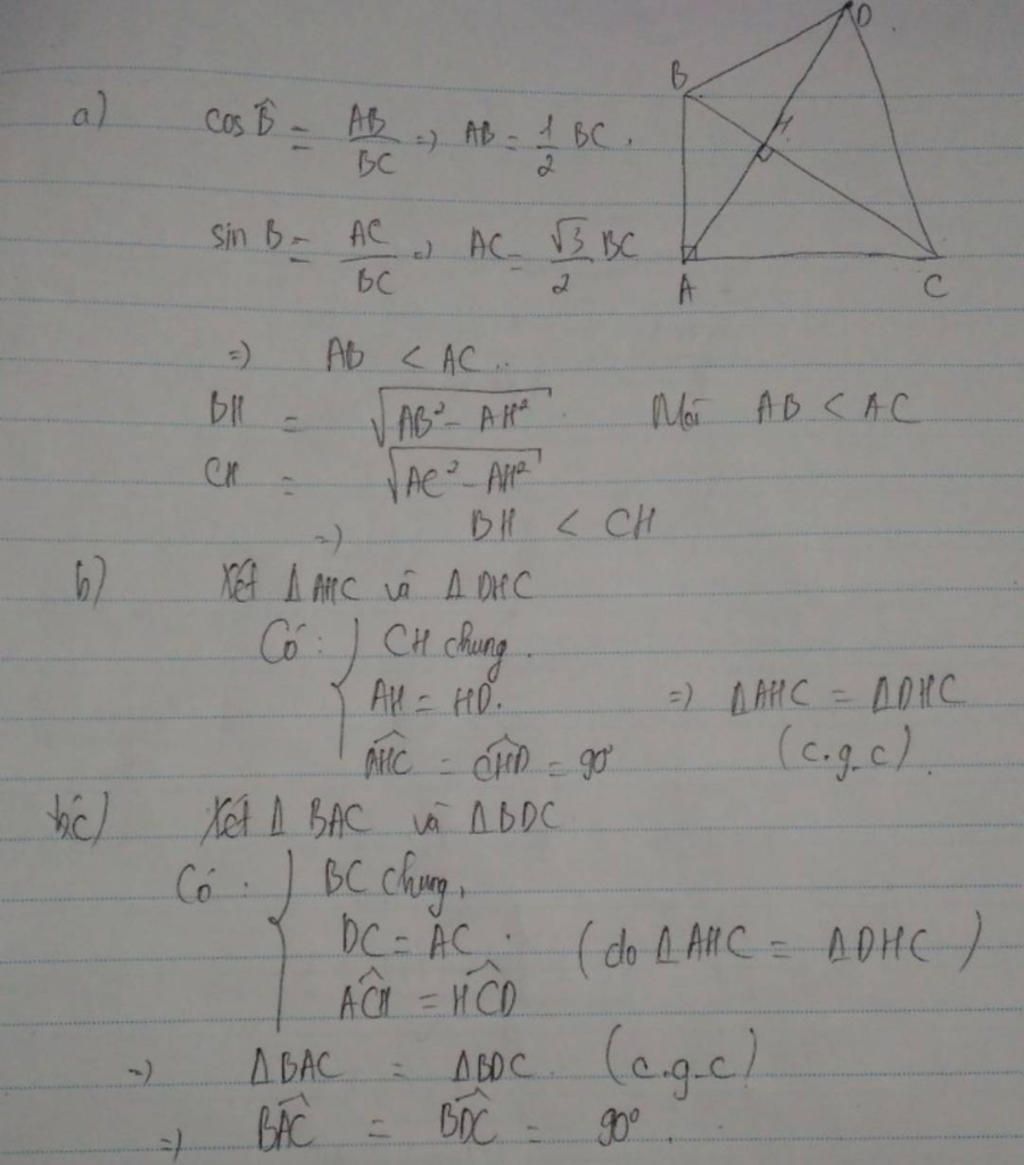 D
B
H
a) cos B̂ = AB/BC => AB = 1/2 BC.
sin B = AC/BC => AC = √3/2 BC
A C
=> AB < AC.
BH = √(AB² - AH²). Mà AB < AC
CH = √(AC² - AH²)
=> BH < CH
b) Xét Δ AHC và Δ DHC
Có: CH chung.
AH = HD. => ΔAHC = ΔDHC
AHC^ = CHD^ = 90° (c.g.c).
c) Xét Δ BAC và ΔBDC
Có: BC chung,
DC = AC. (do ΔAHC = ΔDHC)
ACH^ = HCD^
=> ΔBAC = ΔBDC. (c.g.c)
=> BAC^ = BDC^ = 90°.